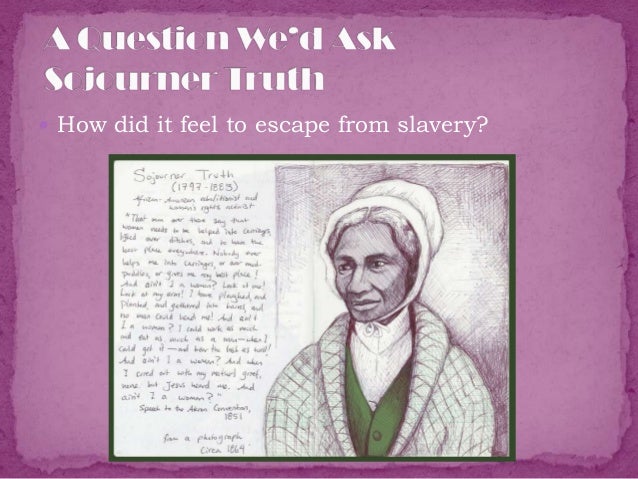 A Question We'd Ask
Sojourner Truth
How did it feel to escape from slavery?
Sojourner Truth
(1797-1883)
African-American abolitionist and
women's rights activist
"That man over there say that
women needs to be helped into carriages,
lifted over ditches, and to have the
best place everywhere. Nobody ever
helps me into carriages, or over mud-
puddles, or gives me any best place!
And ain't I a woman? Look at me!
Look at my arm! I have ploughed, and
planted, and gathered into barns, and
no man could head me! And ain't
I a woman? I could work as much
and eat as much as a man—when I
could get it—and bear the lash as well!
And ain't I a woman? And when
I cried out with my mother's grief,
none but Jesus heard me. And
ain't I a woman?"
Speech to the Akron Convention,
1851
from a photograph
Circa 1864